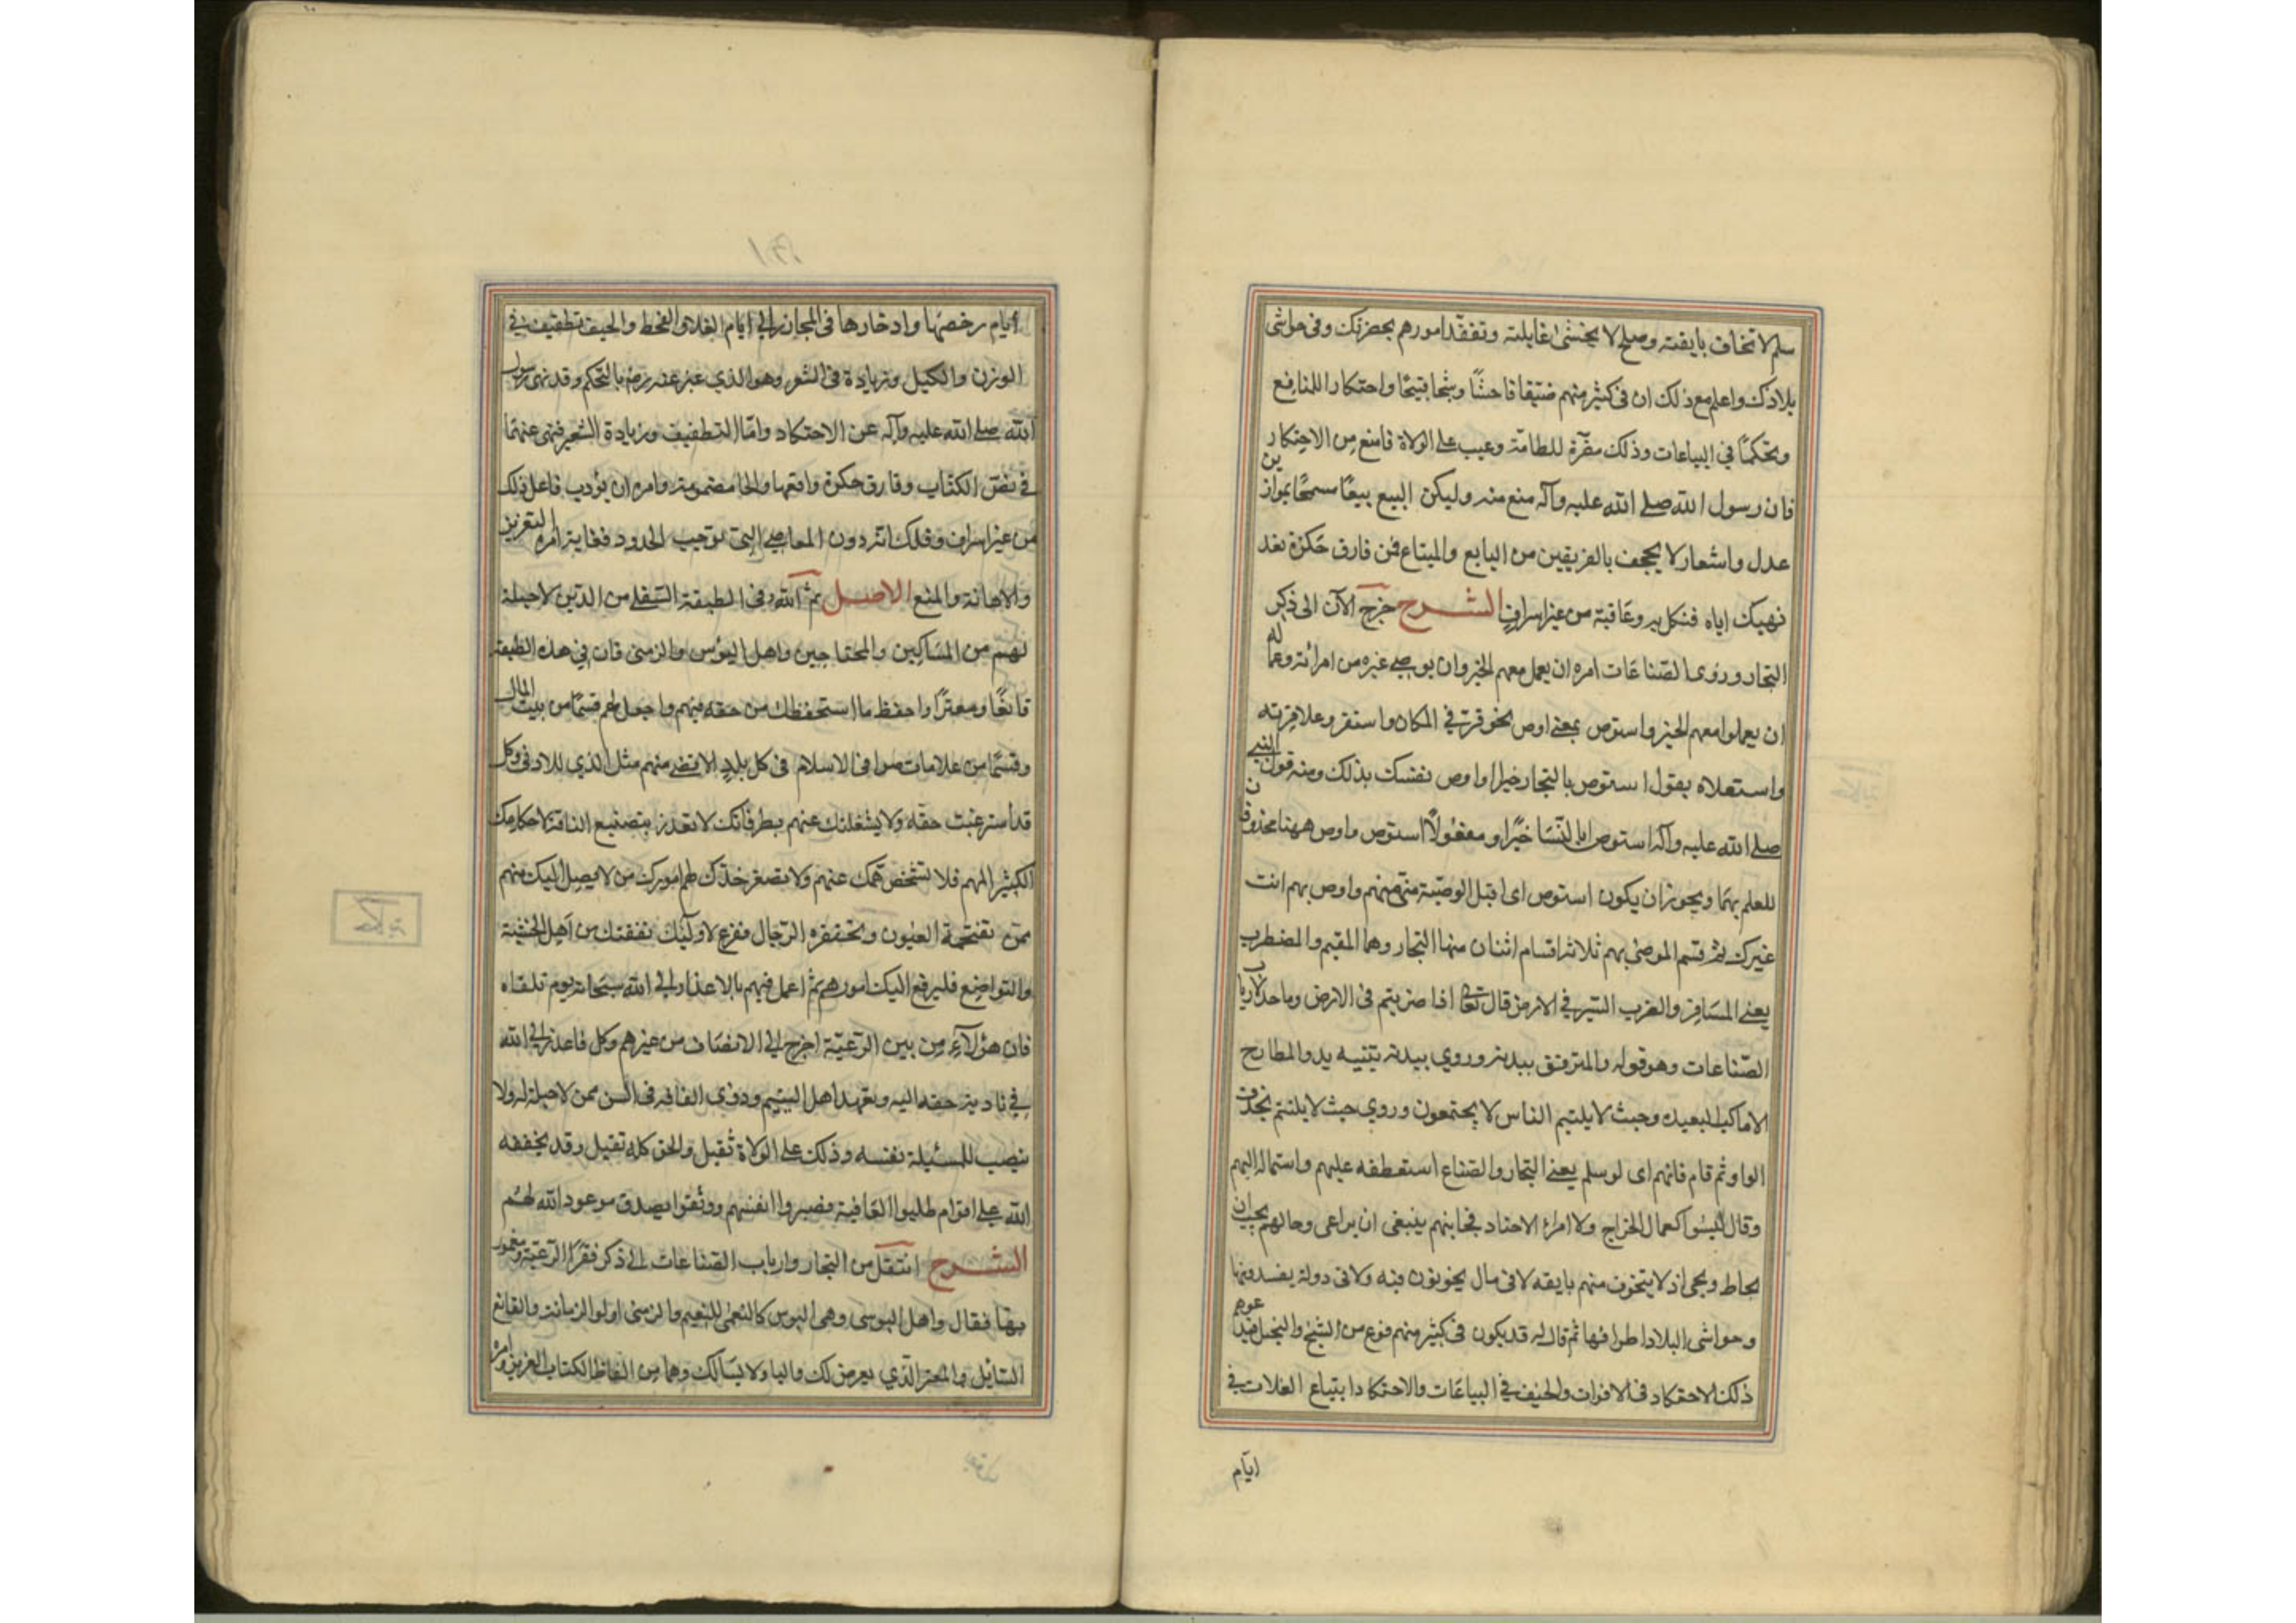 سلم لا تخاف بايقته وصلح لا يخشى غايلته وتفقد امورهم بحضرتك وفى حواشى
بلادك واعلم مع ذلك ان فى كثير منهم ضيقا فاحشًا وشحا قبيحًا واحتكارا للمنافع
وتحكمًا في البياعات وذلك مضرة للعامة وعيب على الولاة فامنع من الاحتكار
فان رسول الله صلى الله عليه وآله منع منه وليكن البيع بيعًا سمحًا بموازين
عدل واسعار لا يجحف بالفريقين من البايع والمبتاع فمن قارف حكرة بعد
نهيك اياه فنكل به وعاقبة من غير اسراف الشرح خرج الآن الى ذكر
التجار وذوى الصناعات امره ان يعمل معهم الخير وان يوصى غيره من امرائه وعماله
ان يعملوا معهم الخير واستوص بمعنى اوص نحو قر في المكان واستقر وعلا قرنه
واستعلاه يقول استوص بالتجار خيرا اى اوص نفسك بذلك ومنه قول النبى
صلى الله عليه وآله استوصوا بالنسا خيرًا ومفعولا استوص واوص ههنا محذوفان
للعلم بهما ويجوز ان يكون استوص اى اقبل الوصية منى بهم واوص بهم انت
غيرك ثم قسم الموصى بهم ثلاثة اقسام اثنان منها التجار وهما المقيم والمضطرب
يعنى المسافر والضرب السير في الارض قال تعالى اذا ضربتم فى الارض وواحد لارباب
الصناعات وهو قوله والمترفق ببدنه وروي بيديه تثنيه يد والمطارح
الاماكن البعيدة وحيث لا يلتيم الناس لا يجتمعون وروي حيث لا يلتئم بحذف
الواو ثم قام فانهم اى لو سلم يعنى التجار والصناع استعطفه عليهم واستماله اليهم
وقال ليسوا كعمال الخراج ولا امراء الاجناد فجانبهم ينبغى ان يراعى وحالهم يجب ان
يحاط ويحمى اذ لا يتخوف منهم بايقه لا فى مال يخونون فيه ولا فى دولة يفسدونها
وحواشى البلاد اطرافها ثم قال له قد يكون فى كثير منهم نوع من الشح والبخل فيدعوهم
ذلك الاحتكار فى الاقوات والحيف في البياعات والاحتكار ابتياع الغلات في
ايام
ايام رخصها وادخارها فى المخازن الى ايام الغلاء والقحط والحيف تطفيف في
الوزن والكيل وزيادة فى السعر وهو الذي عبر عنه بالتحكم وقد نهى رسول
الله صلى الله عليه وآله عن الاحتكار واما التطفيف وزيادة السعر فنهى عنهما
في نص الكتاب وقارف حكرة واقعها والحا مضمومة وامره ان يؤدب فاعل ذلك
من غير اسراف وذلك انه دون المعاصى التى توجب الحدود فغاية امره التعزير
والاهانة والمنع الاصل ثم الله الله فى الطبقة السفلى من الذين لا حيلة
لهم من المساكين والمحتاجين واهل البؤس والزمنى فان في هذه الطبقة
قانعًا ومعترًا واحفظ ما استحفظك من حقه فيهم واجعل لهم قسمًا من بيت المال
وقسمًا من غلات صوافى الاسلام فى كل بلد فان للاقصى منهم مثل الذي للادنى وكل
قد استرعيت حقه ولا يشغلنك عنهم بطر فانك لا تعذر بتضييع التافه لاحكامك
الكثير المهم فلا تشخص همك عنهم ولا تصعر خدك لهم امورك من لا يصل اليك منهم
ممن تقتحمه العيون وتحقره الرجال ففرغ لاولئك ثقتك من اهل الخشية
والتواضع فليرفع اليك امورهم ثم اعمل فيهم بالاعذار الى الله سبحانه يوم تلقاه
فان هؤلاء من بين الرعية احوج الى الانصاف من غيرهم وكل فاعذر الى الله
في تادية حقه اليه وتعهد اهل اليتيم وذوى الفاقه فى السن ممن لا حيلة له ولا
ينصب للمسئلة نفسه وذلك على الولاة ثقيل والحق كله ثقيل وقد يخففه
الله على اقوام طلبوا العافية فصبروا انفسهم ووثقوا بصدق موعود الله لهم
الشرح انتقل من التجار وارباب الصناعات الى ذكر فقراء الرعية ومغمور
يها فقال واهل البوسى وهى البوس كالنعمى للنعيم والزمنى اولوا الزمانة والقانع
السايل والمعتر الذي يعرض لك ولا يسالك وهما من الفاظ الكتاب العزيز وامره